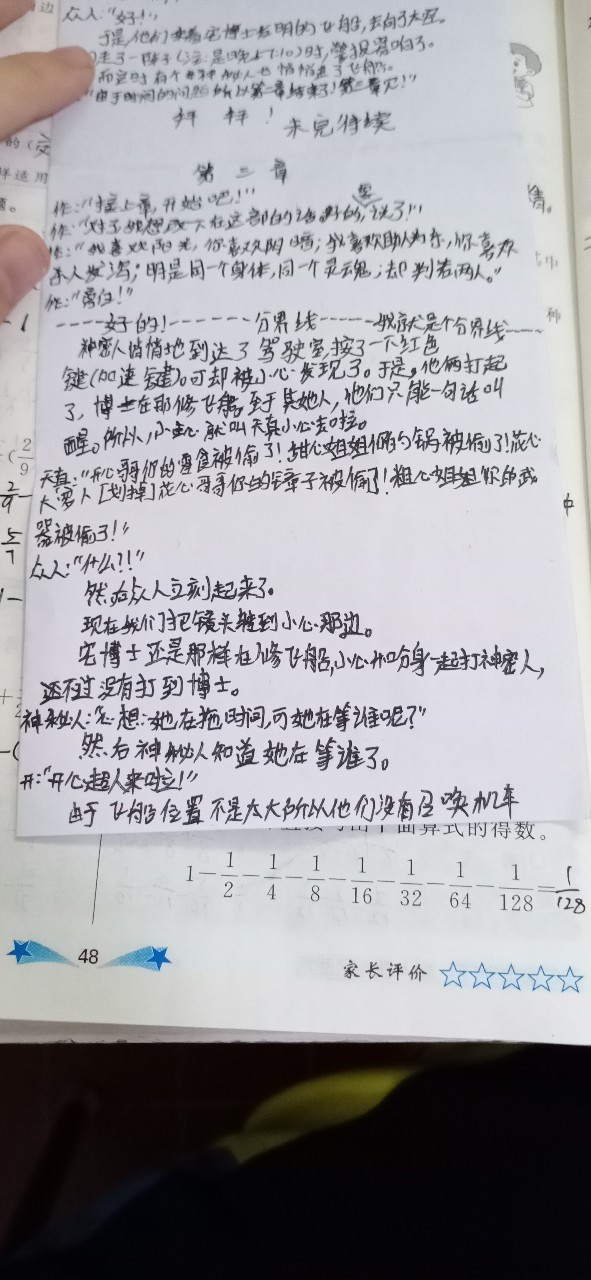 众人:"好!"
于是,他们坐着宅博士发明的飞船,去向了太空。
走了一阵子(注:是晚上7:10)时,警报器响了。
而这时有个神秘人也悄悄进了飞船。
"由于时间的问题所以第二章结束了!第三章见!"
拜拜!未完待续
第三章
作:"接上章,开始吧!"
作:"对了
作:"我喜欢阳光,你喜欢阴暗;我喜欢助人为乐,你喜欢
杀人发泻;明是同一个身体,同一个灵魂;却判若两人。"
作:"旁白!"
----好的!-------分界线-----我就是个分界线----
神密人悄悄地到达了驾驶室,按了一下红色
键(加速键)。可却被小心发现了。于是,他俩打起
了,博士在那修飞船,至于其她人,他们只能一句话叫
醒。所以,小心就叫天真小心去啦。
天真:"开心哥你的零食被偷了!甜心姐姐你的锅被偷了!花心
大萝卜[划掉]花心哥哥你的镜子被偷了!粗心姐姐你的武
器被偷了!"
众人:"什么?!"
然后众人立刻起来了。
现在我们把镜头转到小心那边。
宅博士还是那样在修飞船,小心和分身一起打神密人,
还不过没有打到博士。
神秘人:"心想:她在拖时间,可她在等谁呢?"
然后神秘人知道她在等谁了。
开:"开心超人来啦!"
由于飞船位置不是太大所以他们没有召唤机车
面算式的得数。
1-1/2-1/4-1/8-1/16-1/32-1/64-1/128=1/128
48
家长评价